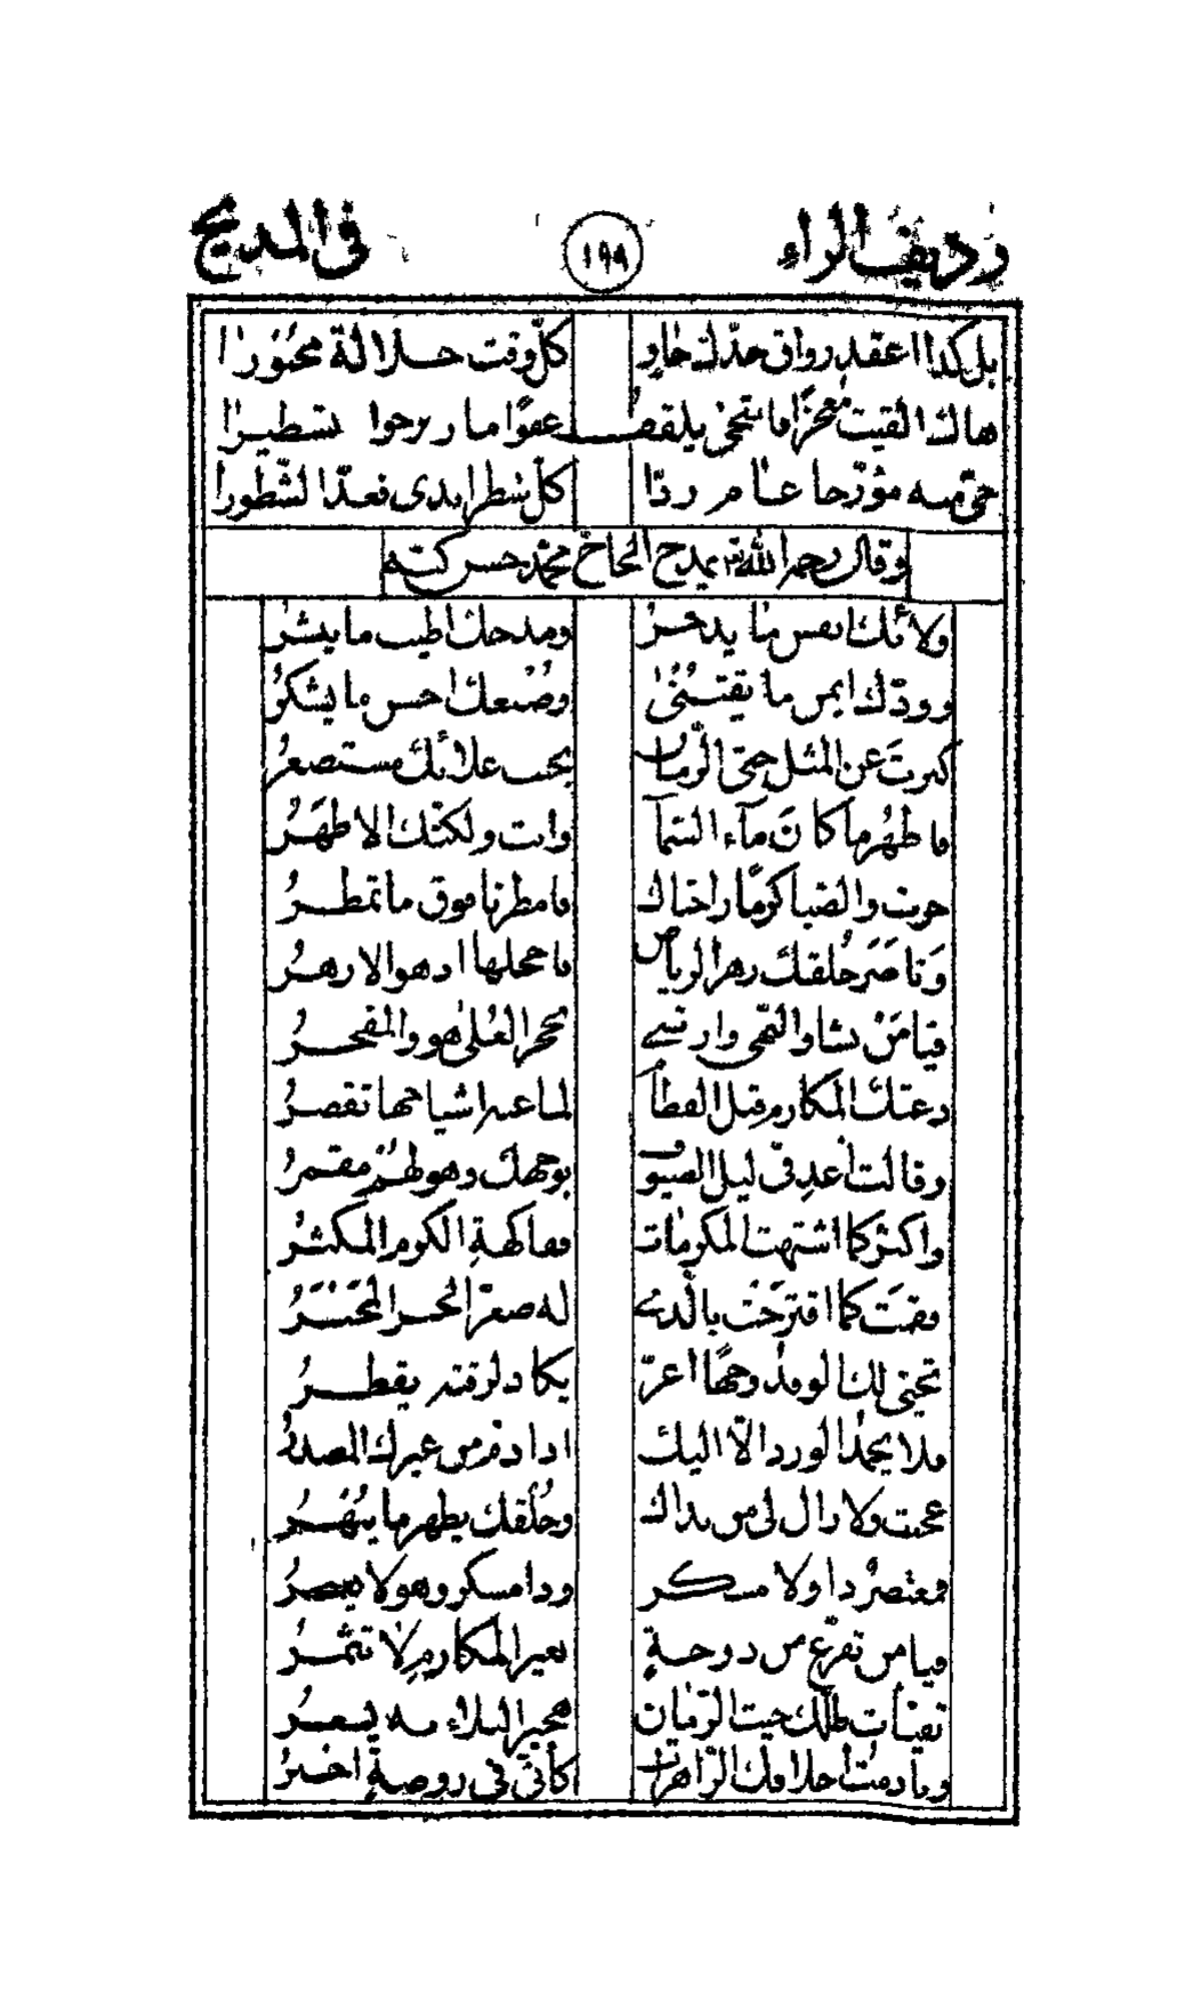 رديف الراء ١٩٩ في المديح
بل كذا اعقد رواق جاو كلّ وقت جلالة محبورا
هاك القيت معجزًا ما يلقف عفوًا ما تسطيرا
مؤرّخا عام ردّا كلّ شطر ابدى فعدّ الشطورا
وقال رحمه الله يمدح الحاج محمّد حسن كبّه
ولائك انفس ما يدخرُ ومدحك اطيب ما ينشرُ
وودّك ايمن ما يقتنى وصنعك احسن ما يشكرُ
كبرتَ عن المثل حتى الزمان بجنب علائك مستصغرُ
ما طهُر ما كانَ مآء السّمآ وانت ولكنّك الاطهَرُ
جرت والصبا كرمًا راحتاك ما مطرتا فوق ما تمطرُ
وَناضرَ خُلقك زهر الرياض ما خجلها اذ هو الازهرُ
فيا مَنْ نشا والنهى وارتبى بحجر العُلى هو والمفخرُ
دعتك المكارم قبل الفطام لما عنه اشياخها تقصرُ
وقالت أعد في ليل الضيوف بوجهك وهو لهُمْ مقمرُ
واكثر كما اشتهت المكرمات ففاكهةِ الكرم المكثرُ
فقمتَ كما اقترحت بالّذي له صعّر الخد
تجيئ لك الوفد وجهًا اغرّ يكاد لرقته يقطرُ
فلا يحمد الورد الّا اليك اذا ذمّ من غيرك المصدرُ
عجبت ولا زال لي من نداك وخُلقك يظهر ما يبهرُ
فمعتصرٌ ذا ولا مسكر وذا مسكر وهو لا يعصرُ
فيا من تفرّع من دوحةٍ بغير المكارم لا تثمرُ
تفيّأت ظلّك حيث الزمان هجير البلاء به يسعرُ
ونادمتُ اخلاقك الزاهرات كأنّي في روضةٍ احبرُ